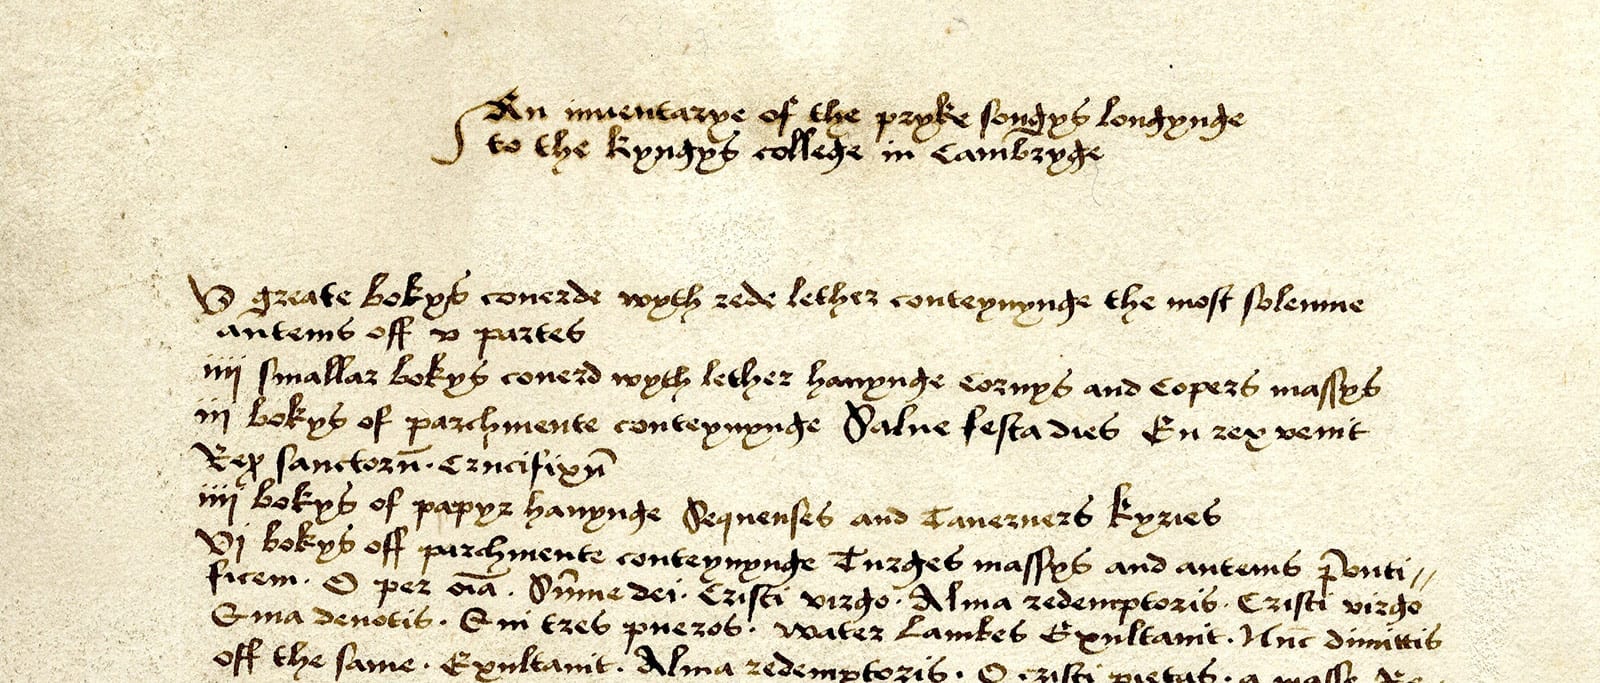 An inuentarye of the pryke songys longynge
to the kyngys college in Cambryge
V greate bokys couerde wyth rede lether conteynynge the most solemne
antems off v partes
iiij smallar bokys couerd wyth lether hauynge Cornys and Copers massys
iij bokys of parchmente conteynynge Salue festa dies En rex venit
Rex sanctorū. Crucifixū
iiij bokys of papyr hauynge Sequenses and Tauerners kyries
Vj bokys off parchmente conteynynge Turges massys and antems Ponti//
ficem. O per oīa. Sūme dei. Cristi virgo. Alma redemptoris. Cristi virgo
deuotis. Qui tres pueros. water Lambes Exultauit. Nūc dimittis
off the same. Exultauit. Alma redemptoris. O cristi pietas. a masse Re